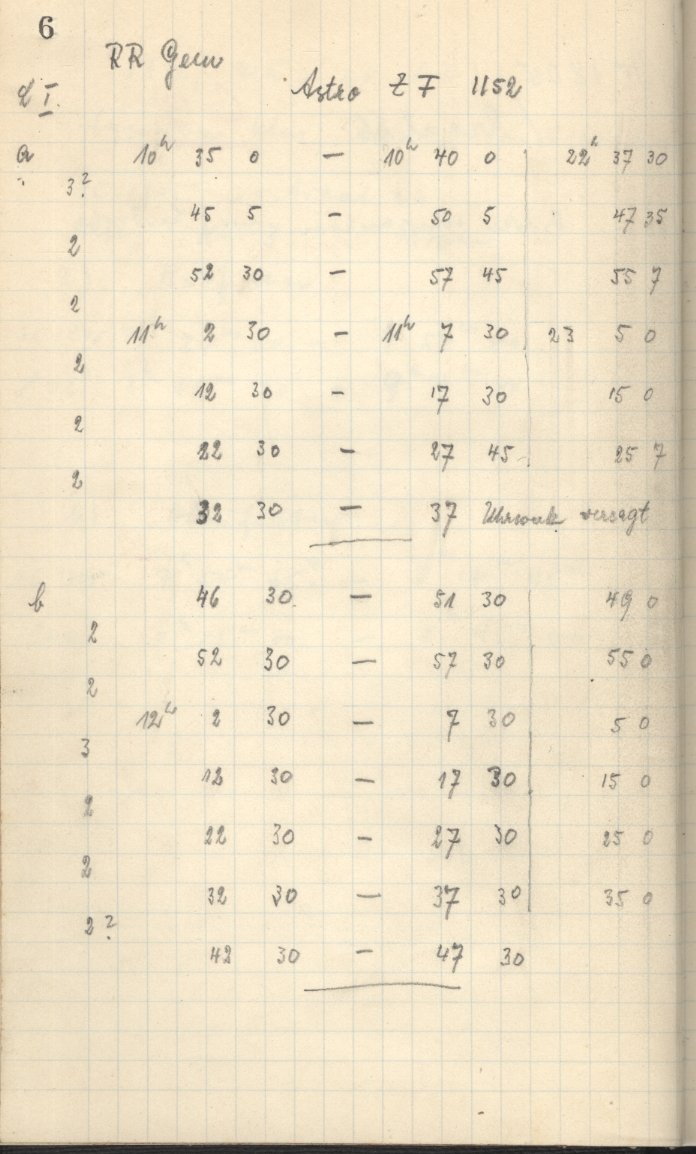 6
RR Gem
I.
Astro Z F 1152
a 10h 35 0 — 10h 40 0 22h 37 30
3?
45 5 — 50 5 47 35
2
52 30 — 57 45 55 7
2
11h 2 30 — 11h 7 30 23 5 0
2
12 30 — 17 30 15 0
2
22 30 — 27 45 25 7
2
32 30 — 37 Uhrwerk versagt
b 46 30 — 51 30 49 0
2
52 30 — 57 30 55 0
2
12h 2 30 — 7 30 5 0
3
12 30 — 17 30 15 0
2
22 30 — 27 30 25 0
2
32 30 — 37 30 35 0
2?
42 30 — 47 30